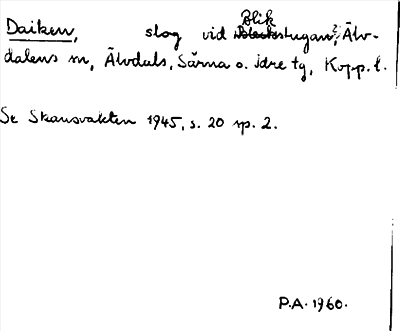 Daiken, slog vid Blikstugan?, Älv-
dalens sn, Älvdals, Särna o. Idre tg, Kopp. l.
Se Skansvakten 1945, s. 20 sp. 2.
P.A. 1960.